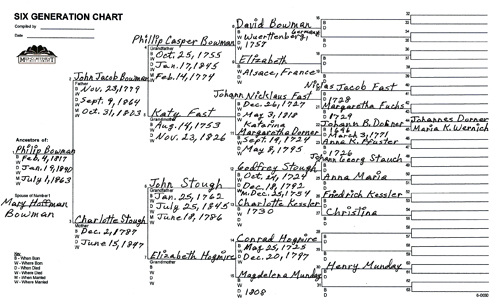 SIX GENERATION CHART
Compiled by
Date
Ancestors of:
1 Philip Bowman
B Feb. 4, 1817
D Jan. 19, 1890
M July 1, 1863
Spouse of Number 1
Mary Hoffman
Bowman
2 John Jacob Bowman
Father
B Nov. 23, 1779
D Sept. 9, 1864
M Oct. 31, 1803
3 Charlotte Stough
Mother
B Dec. 2, 1787
D June 15, 1847
Phillip Casper Bowman
Grandfather
B Oct. 25, 1755
D Jan. 17, 1845
M Feb. 14, 1774
5 Katy Fast
Grandmother
B Aug. 14, 1753
D Nov. 23, 1826
John Stough
B Jan. 25, 1762
D July 25, 1845
M June 18, 1786
Elizabeth Hogmire
Grandmother
8 David Bowman
Wuerttenberg, Germany
1757
9 Elizabeth
Alsace, France
Johann Nicklaus Fast
B Dec. 26, 1727
D May 3, 1818
M Katarina
Margarotha Dorner
B Sept. 19, 1724
D May 8, 1795
Godfrey Stough
B Oct. 24, 1724
D Dec. 18, 1792
M Dec. 25, 1754
13 Charlotte Kessler
B 1730
Conrad Hogmire
B May 25, 1725
D Dec. 20, 1797
15 Magdelena Munday
D 1808
Jacob Fast
1728
Margaretha Fuchs
1729
Johann B. Dorner
1696
March 3, 1771
Anna K. Pfister
1726
Johann Georg Stauch
Anna Maria
Friedrich Kessler
Christina
Henry Munday
Johannes Dorner
Maria K. Wernich
Key
B - When Born
W - Where Born
D - When Died
W - Where Died
M - When Married
W - Where Married